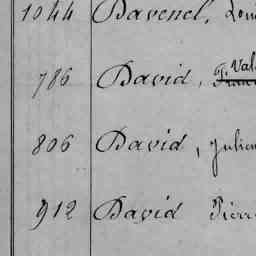 1044 Davenel, Loui
786 David, F. Val
806 David, Julien
912 David Pierr